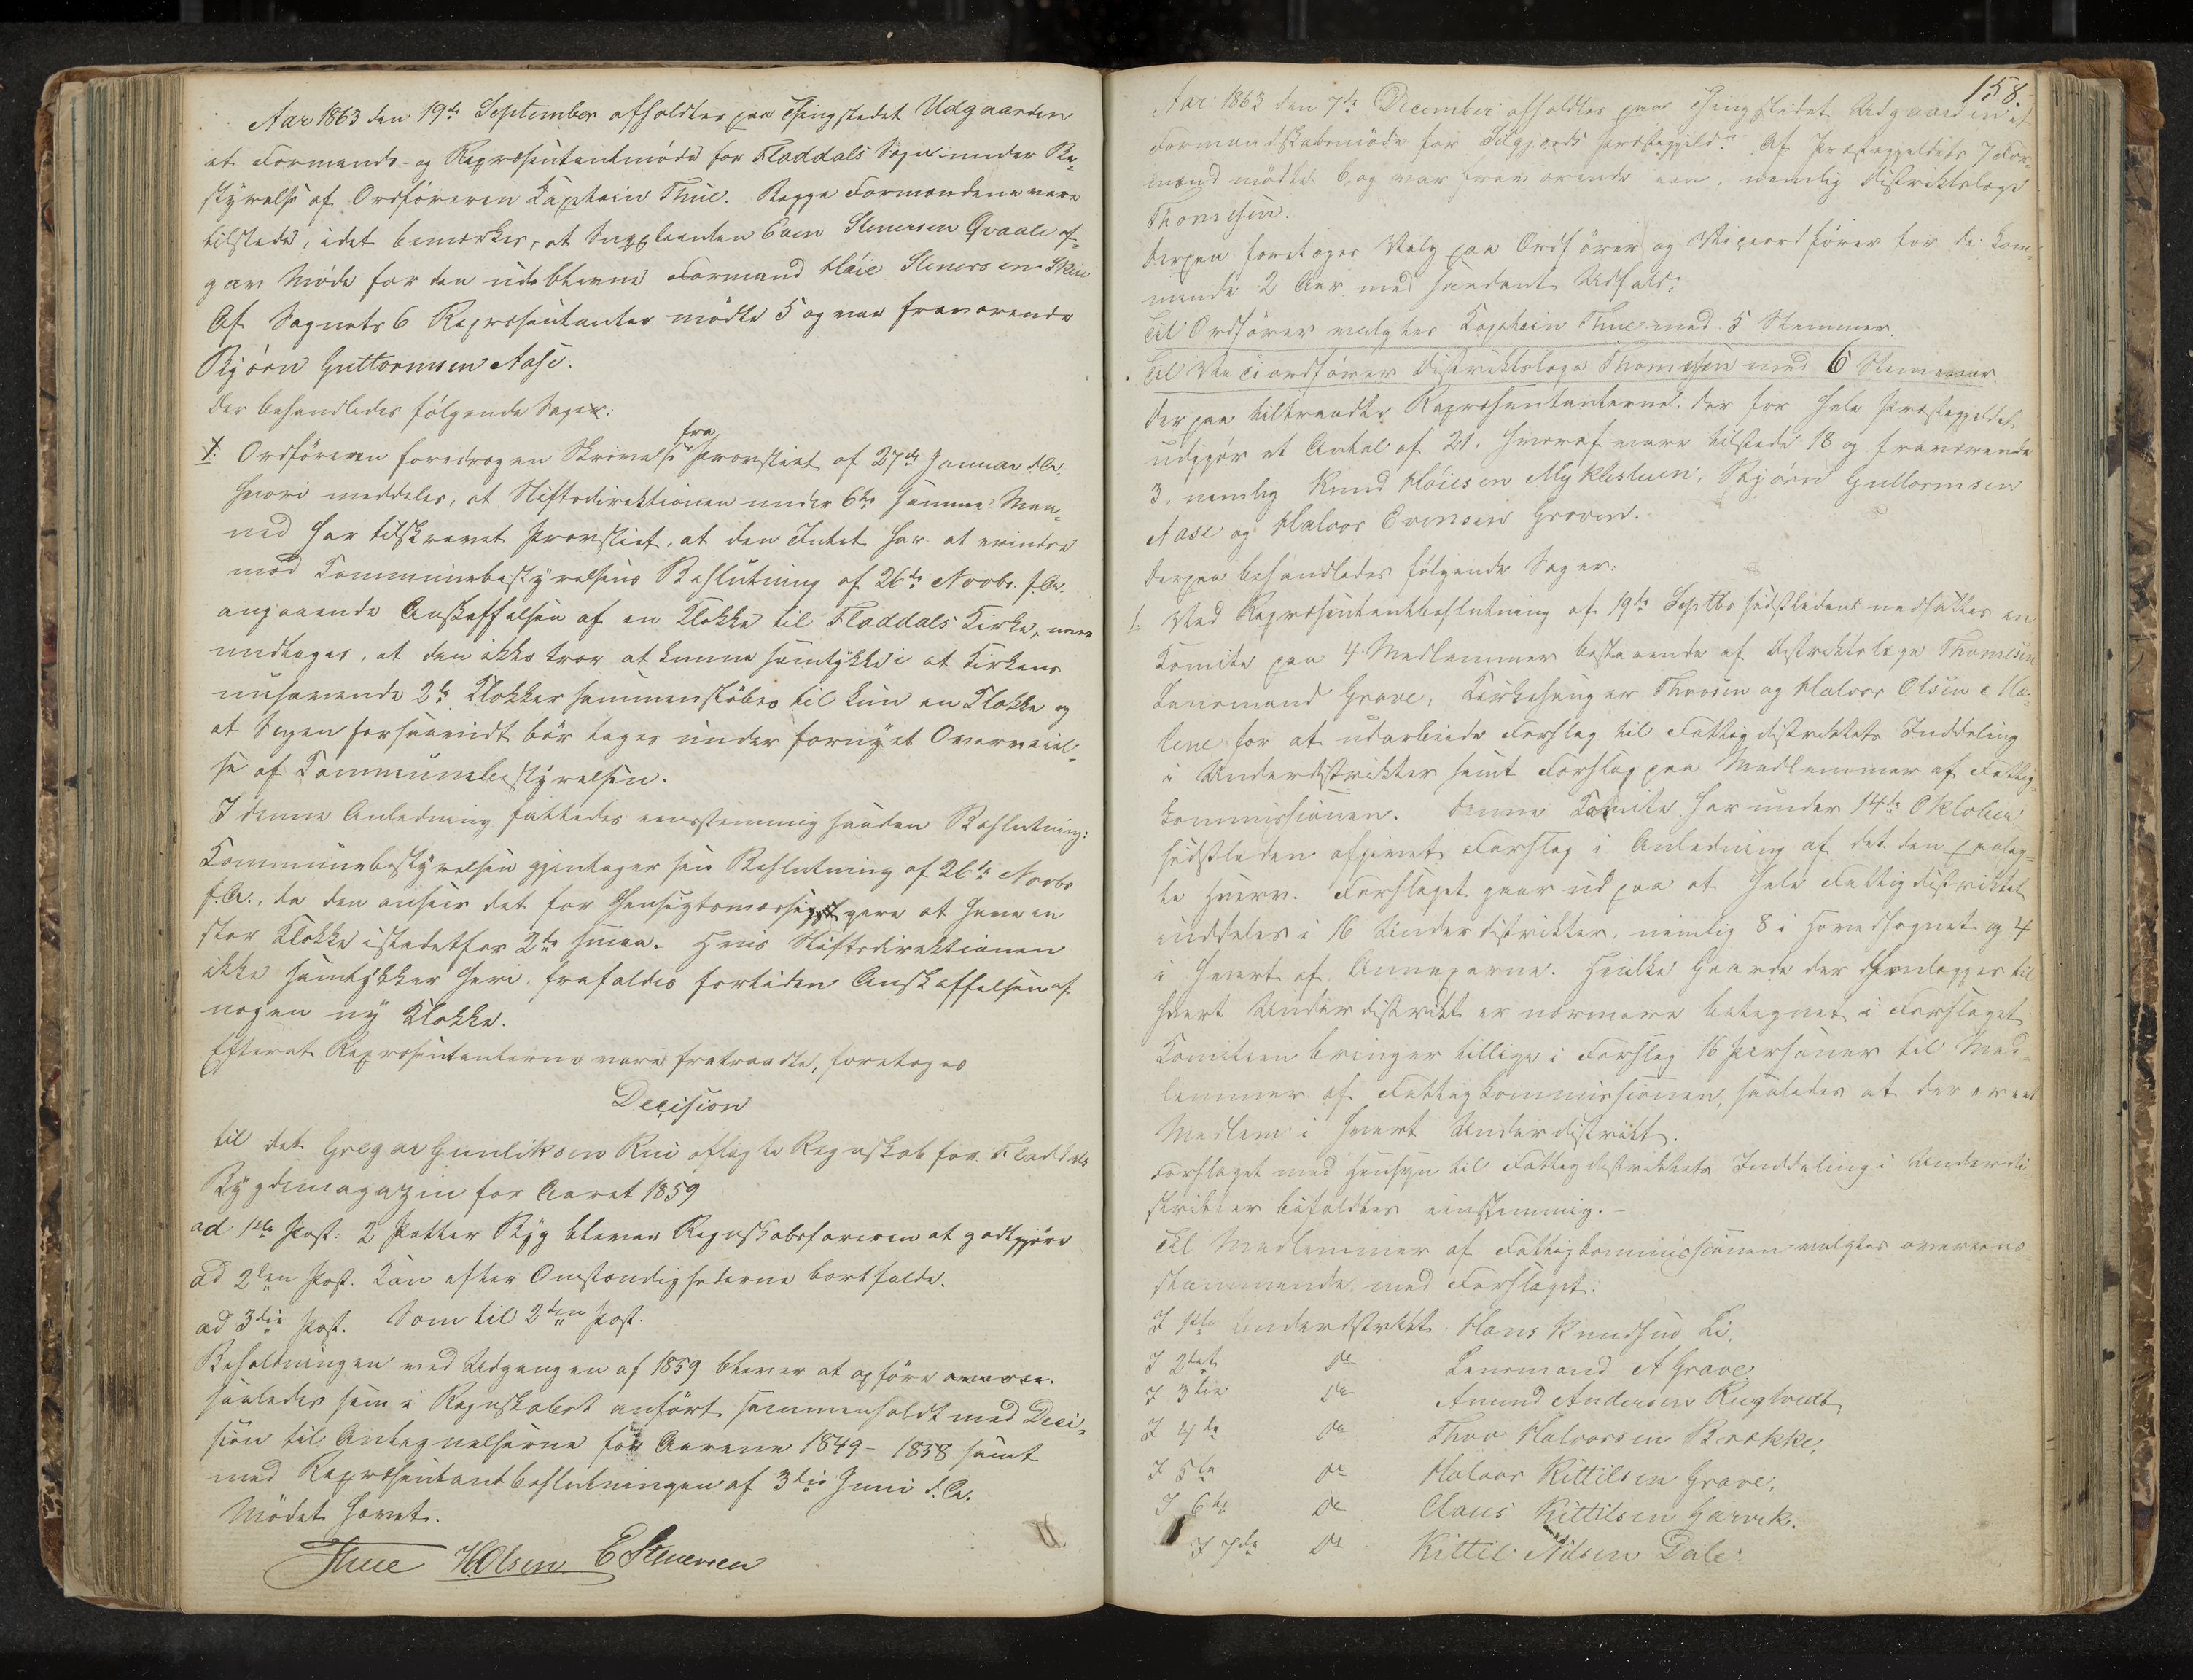 Aar 1863 den 19de September afholdtes paa Thingstedet Udgaarden
et Formands- og Repræsentantmöde for Fladdals Sogn under Be-
styrelse af Ordföreren Kaptain Thue. Begge Formændene vare
tilstede, idet bemærkes, at Suppleanten Even Stenersen Qvaale af-
gav Möde for den udeblevne Formand Höie Stenersen Skeie
Af Sognets 6 Repræsentanter mödte 5 og var fraværende
Björn Guttormsen Aase.
Der behandledes fölgende Sager:
1. Ordföreren foredrog en Skrivelse fra Provstiet af 27de Januar d.A.
hvori meddeles, at Stiftsdirektionen under 6te samme Maa-
ned har tilskrevet Provstiet, at den Intet har at erindre
mod Kommunebestyrelsens Beslutning af 26de Novbr. f.A.
angaaende Anskaffelsen af en Klokke til Fladdals Kirke, naar
undtages, at den ikke tror at kunne samtykke i at Kirkens
nuhavende 2de Klokker sammenstöbes til kun en Klokke og
at Sagen forsaavidt bör tages under fornyet Overveiel-
se af Kommunebestyrelsen.
I denne Anledning fattedes eenstemmig saadan Beslutning:
Kommunebestyrelsen gjentager sin Beslutning af 26de Novbr
f.A., da den anseer det for hensigtsmæssigere at have en
stor Klokke istedetfor 2de smaa. Hvis Stiftsdirektionen
ikke samtykker heri, frafaldes fortiden Anskaffelsen af
nogen ny Klokke.
Efterat Repræsentanterne vare fratraadte, foretoges
Decision
til det Gregar Gunliksen Rui aflagte Regnskab for Fladdals
Bygdemagazin for Aaret 1859
ad 1ste Post: 2 Potter Byg bliver Regnskabsföreren at godtgjöre
ad 2den Post. Kan efter Omstændighederne bortfalde.
ad 3die Post. Som til 2den Post.
Beholdningen ved Udgangen af 1859 bliver at opföre
saaledes som i Regnskabet anfört sammenholdt med Deci-
sion til Antegnelserne for Aarene 1849-1858 samt
med Repræsentantbeslutningen af 3die Juni d.A.
Mödet hævet.
Thue H.Olsen E Stenersen
158.
Aar 1863 den 7de December afholdtes paa Thingstedet Udgaarden et
Formandskabsmöde for Silgjords Præstegjeld. Af Præstegjeldets 7 For-
mænd mödte 6, og var fraværende een, nemlig Distriktslæge
Thomesen.
Derpaa foretoges Valg paa Ordförer og Viceordförer for de kom-
mende 2 Aar med saadant Udfald:
Til Ordförer valgtes Kaptain Thue med 5 Stemmer.
Til Viceordförer Distriktslæge Thomesen med 6 Stemmer.
Derpaa tiltraadte Repræsentanterne, der for hele Præstegjeldet
udgjör et Antal af 21, hvoraf vare tilstede 18 og fraværende
3, nemlig Knud Höiesen Myklestuen, Björn Guttormsen
Aase og Halvor Evensen Groven.
Derpaa behandledes fölgende Sager:
1. Ved Repræsentantbeslutning af 19de Septbr sidstleden nedsattes en
Komite paa 4 Medlemmer bestaaende af Distriktslæge Thomesen
Lensmand Grave, Kirkesanger Thorsen og Halvor Olsen
for at udarbeide Forslag til Fattigdistriktets Inddeling
i Underdistrikter samt Forslag paa Medlemmer af Fattig-
kommissionen. Denne Komite har under 14de Oktober
sidstleden afgivet Forslag i Anledning af det den paalag-
te Hverv. Forslaget gaar ud paa at hele Fattigdistriktet
inddeles i 16 Underdistrikter, nemlig 8 i Hovedsognet og 4
i hvert af Annexerne. Hvilke Gaarde der henlægges til
hvert Underdistrikt er nærmere betegnet i Forslaget
Komiteen bringer tillige i Forslag 16 Personer til Med-
lemmer af Fattigkommissionen, saaledes at der er eet
Medlem i hvert Underdistrikt.
Forslaget med Hensyn til Fattigdistriktets Inddeling i Underdi-
strikter bifaldtes eenstemmig.
Til Medlemmer af Fattigkommissionen valgtes overeens
stemmende med Forslaget:
I 1ste Underdistrikt Hans Knudsen Li,
I 2det Do Lensmand A Grave
I 3die Do Amund Andersen Rugtvedt
I 4de Do Thor Halvorsen Brække,
I 5te Do Halvor Kittilsen Grave,
I 6te Do Claus Kittilsen Garvik.
I 7de Do Kittil Nilsen Dale.